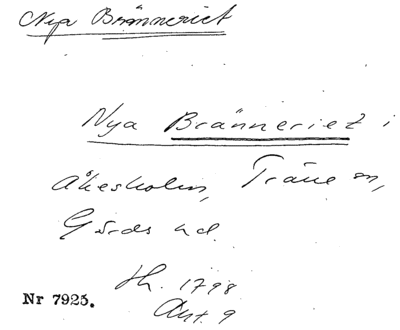 Nya Bränneriet
Nya Bränneriet i
Åkesholm, Träne sn,
Gärds hd.
th. 1798
Ant. 9
Nr 7925.